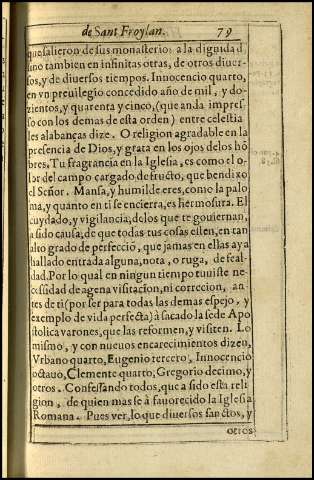 de Sant Froylan. 79
que salieron de sus monasterio: a la dignidad
sino tambien en infinitas otras, de otros diuer-
sos, y de diuersos tiempos. Innocencio quarto,
en vn preuilegio concedido año de mil, y do-
zientos, y quarenta y cinco, (que anda impres-
so con los demas de esta orden) entre celestia
les alabanças dize. O religion agradable en la
presencia de Dios, y grata en los ojos delos hō
bres, Tu fragrancia en la Iglesia, es como el o-
lor del campo cargado de fructo, que bendixo
el Señor. Mansa, y humilde eres, como la palo-
ma, y quanto en ti se encierra, es hermosura. El
cuydado, y vigilancia, delos que te gouiernan,
a sido causa, de que todas tus cosas esten, en tan
alto grado de perfecciō, que jamas en ellas aya
hallado entrada alguna, nota, o ruga, de feal-
dad. Por lo qual en ningun tiempo tuuiste ne-
cessidad de agena visitacion, ni correcion, an-
tes de ti (por ser para todas las demas espejo, y
exemplo de vida perfecta) à sacado la sede Apo
stolica varones, que las reformen, y visiten. Lo
mismo, y con nueuos encarecimientos dizen,
Vrbano quarto, Eugenio tercero, Innocencio
octauo, Clemente quarto, Gregorio decimo, y
otros. Confessando todos, que a sido esta reli
gion, de quien mas se à fauorecido la Iglesia
Romana. Pues ver, lo que diuersos sanctos, y
otros